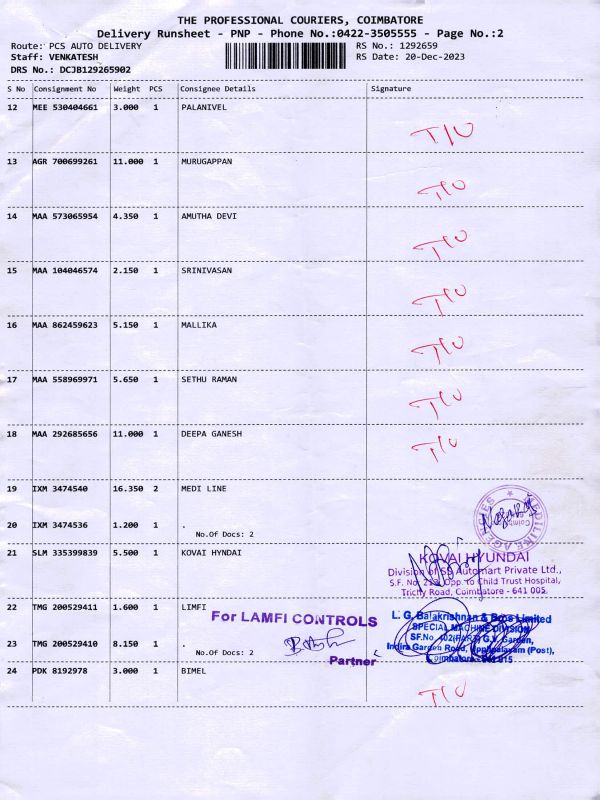 THE PROFESSIONAL COURIERS, COIMBATORE
Delivery Runsheet - PNP - Phone No.:0422-3505555 - Page No.:2
Route: PCS AUTO DELIVERY RS No.: 1292659
Staff: VENKATESH RS Date: 20-Dec-2023
DRS No.: DCJB129265902
S No Consignment No Weight PCS Consignee Details Signature
12 MEE 530404661 3.000 1 PALANIVEL T/U
13 AGR 700699261 11.000 1 MURUGAPPAN T/U
14 MAA 573065954 4.350 1 AMUTHA DEVI T/U
15 MAA 104046574 2.150 1 SRINIVASAN T/U
16 MAA 862459623 5.150 1 MALLIKA T/U
17 MAA 558969971 5.650 1 SETHU RAMAN T/U
18 MAA 292685656 11.000 1 DEEPA GANESH T/U
19 IXM 3474540 16.350 2 MEDI LINE
MEDILINE AGENCIES
20 IXM 3474536 1.200 1 .
No.Of Docs: 2
21 SLM 335399839 5.500 1 KOVAI HYNDAI
KOVAI HYUNDAI
Division of SS Automart Private Ltd.,
S.F. No. 213, Opp. to Child Trust Hospital,
Trichy Road, Coimbatore - 641 005.
22 TMG 200529411 1.600 1 LIMFI
For LAMFI CONTROLS
Partner
L. G. Balakrishnan & Bros Limited
SPECIAL MACHINE DIVISION
SF.No. 402(PART) G.V. Garden,
Indira Garden Road, Upplipalayam (Post),
Coimbatore - 641 015
23 TMG 200529410 8.150 1 .
No.Of Docs: 2
24 PDK 8192978 3.000 1 BIMEL T/U